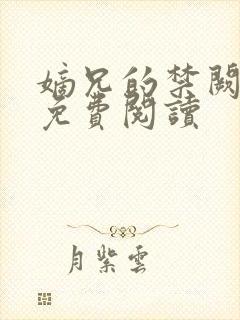 嫡兄的禁闕
免費閱讀
月紫雲